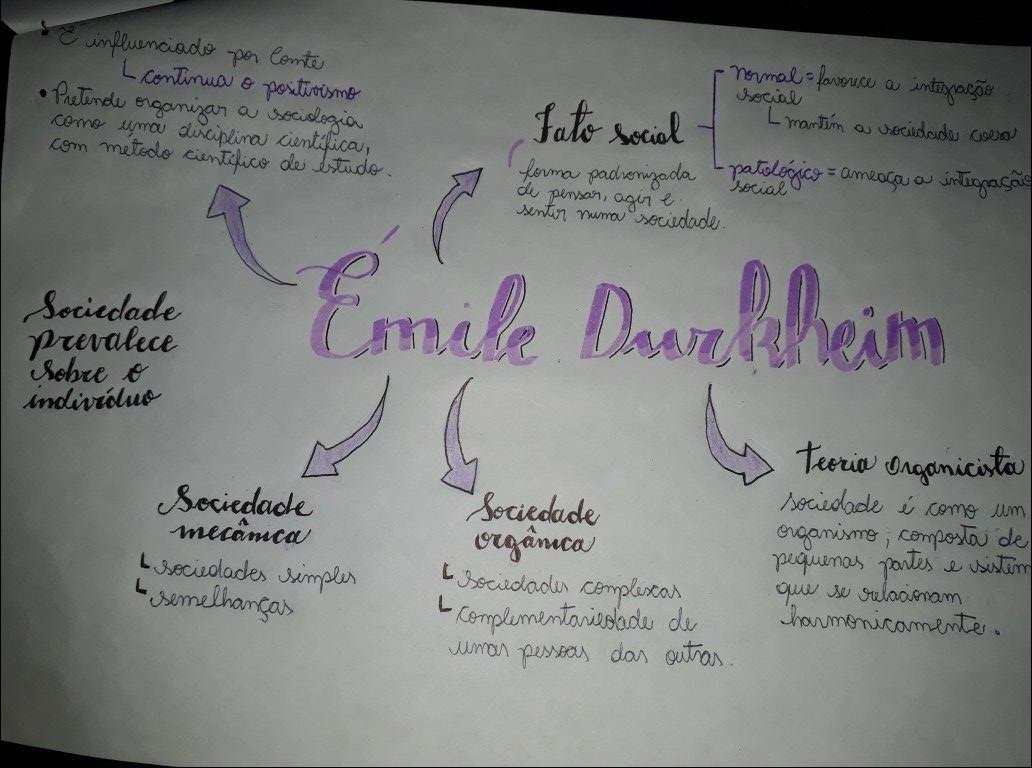 • É influenciado por Comte
continua o positivismo
• Pretende organizar a sociologia
como uma disciplina científica,
com metodo científico de estudo.
Fato social
forma padronizada
de pensar, agir e
sentir numa sociedade.
normal = favorece a integração
social
mantém a sociedade coesa
patológico = ameaça a integração
social
Émile Durkheim
Sociedade
prevalece
sobre o
indivíduo
Sociedade
mecânica
sociedades simples
semelhanças
Sociedade
orgânica
sociedades complexas
complementariedade de
umas pessoas das outras.
Teoria Organicista
sociedade é como um
organismo; composta de
pequenas partes e sistem
que se relacionam
harmonicamente.